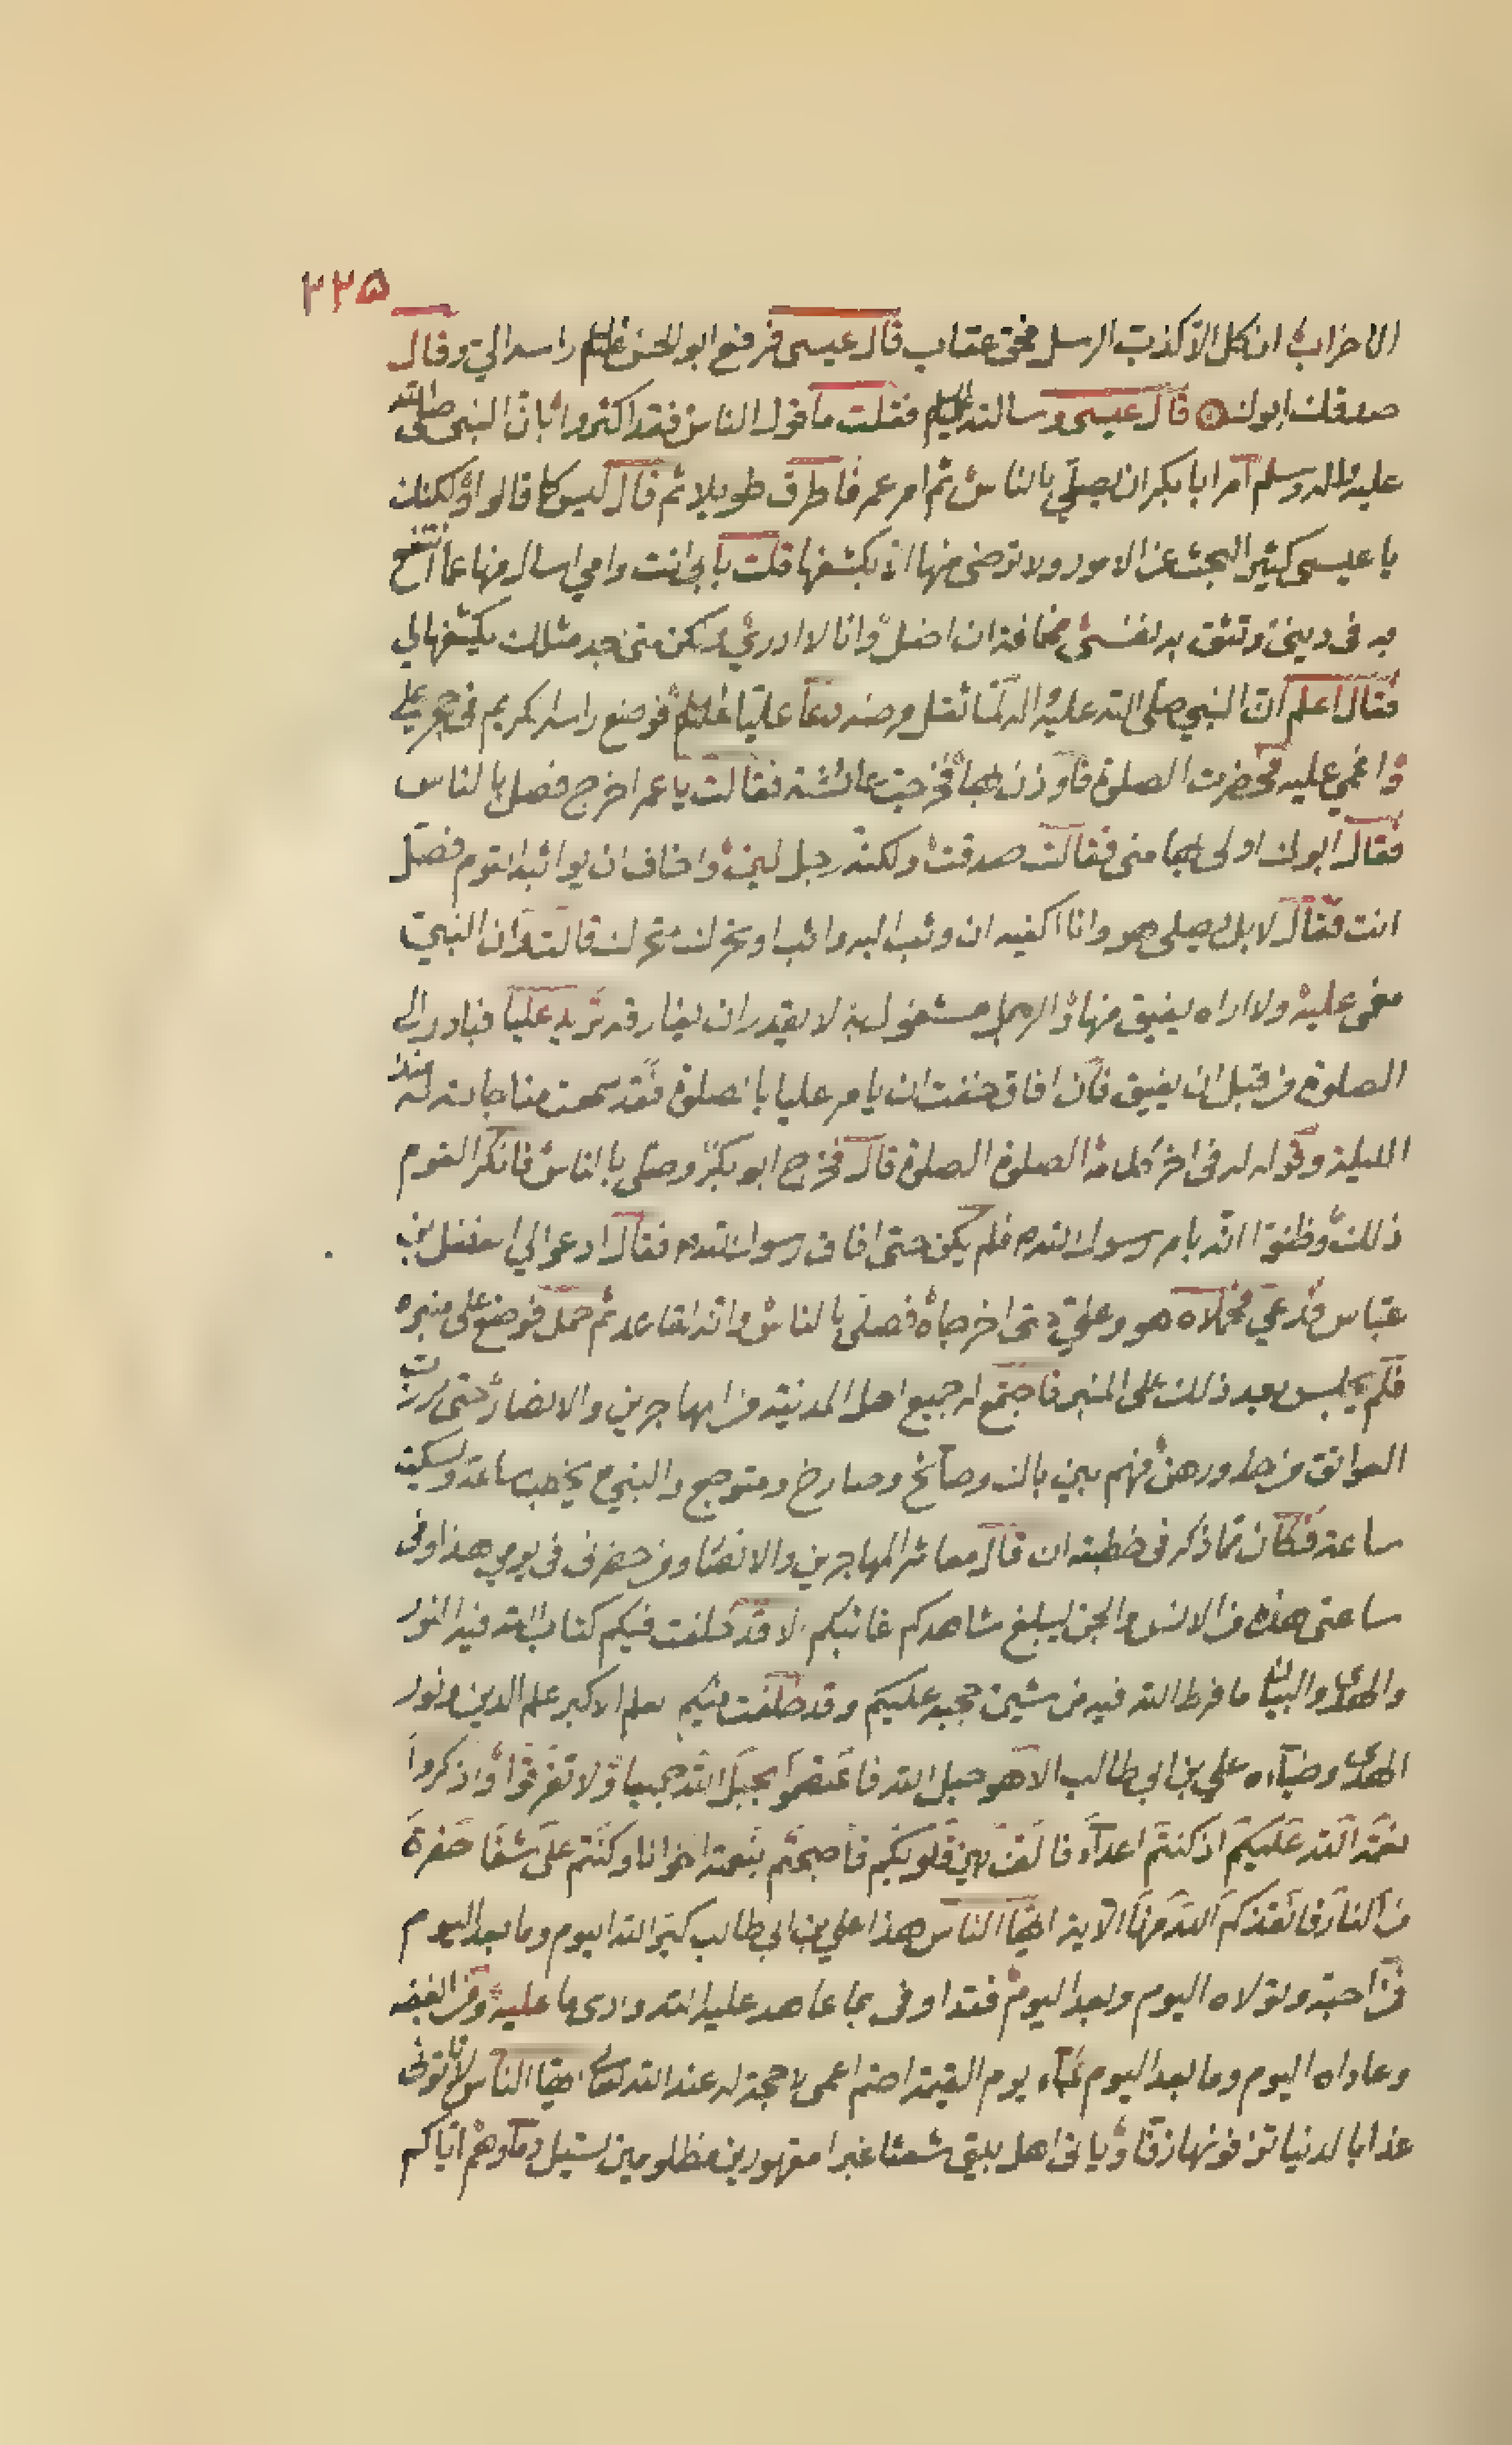 ٢٢٥
الاحزاب ان كل الا كذب الرسل فحق عقاب قال عيسى فرفع ابو الحسن عليه السلم راسه الي وقال
صدقك ابوك قال عيسى وسالته عليه السلم فقلت ما تقول الناس فقد اكثروا بان النبي صلى الله
عليه واله وسلم امر ابا بكر ان يصلي بالناس ثم امر عمر فاطرق طويلا ثم قال ليس كما قالوا ولكنك
يا عيسى كثير البحث عن الامور ولا ترضى منها الا بكشفها قلت بابي انت وامي اسال منها عما انتفع
به في ديني وتثق به نفسي مخافة ان اضل وانا لا ادري ولكن متى اجد مثلك يكشفها لي
فقال اعلم ان النبي صلى الله عليه واله لما ثقل مرضه دعا عليا عليه السلم فوضع راسه الكريم في حجر علي
واغمي عليه فحضرت الصلوة فاوذن بها فخرجت عائشة فقالت يا عمر اخرج فصل بالناس
فقال ابوك اولى بها مني فقالت صدقت ولكنه رجل لين واخاف ان يواثبه القوم فصل
انت فقال لا بل يصلي هو وانا اكفيه ان وثب اليه واثب او تحرك متحرك قالت وان النبي
مغمى عليه ولا اراه يفيق منها والرجل مشغول به لا يقدر ان يفارقه تريد عليا فبادر الى
الصلوة من قبل ان يفيق فان افاق خفت ان يامر عليا بالصلوة فقد سمعت مناجاته له منذ
الليلة وقوله له في اخر كلامه الصلوة الصلوة قال فخرج ابو بكر وصلى بالناس فانكر القوم
ذلك وظنوا انه بامر رسول الله فلم يكن حتى افاق رسول الله فقال ادعوا لي الفضل بن
عباس فدعي فحملاه هو وعلي حتى اخرجاه فصلى بالناس وانه لقاعد ثم حمل فوضع على منبره
فلم يجلس بعد ذلك على المنبر فاجتمع له جميع اهل المدينة من المهاجرين والانصار حتى برزت
العواتق من خدورهن فهم بين باك وصائح وصارخ ومتوجع والنبي يخطب ساعة ويسكت
ساعة فكان مما ذكر في خطبته ان قال معاشر المهاجرين والانصار ومن حضرني في يومي هذا وفي
ساعتي هذه من الانس والجن ليبلغ شاهدكم غائبكم الا قد خلفت فيكم كتاب الله فيه النور
والهدى والبيان ما فرط الله فيه من شيئ حجبه عليكم وقد خلفت فيكم العلم الاكبر علم الدين ونور
الهدى وضيآءه علي بن ابي طالب الا هو حبل الله فاعتصموا بحبل الله جميعا ولا تفرقوا واذكروا
نعمة الله عليكم اذ كنتم اعدآء فالف بين قلوبكم فاصبحتم بنعمته اخوانا وكنتم على شفا حفرة
من النار فانقذكم الله منها الآية ايها الناس هذا علي بن ابي طالب كنز الله اليوم وما بعد اليوم
من احبه وتولاه اليوم وبعد اليوم فقد اوفى بما عاهد عليه الله وادى ما عليه ومن ابغضه
وعاداه اليوم وما بعد اليوم جآء يوم القيمة اصم اعمى لا حجة له عند الله تعالى ايها الناس لا تاتوني
غدا بالدنيا تزفونها زفا وياتي اهل بيتي شعثا غبرا مقهورين مظلومين تسيل دمآوهم اياكم